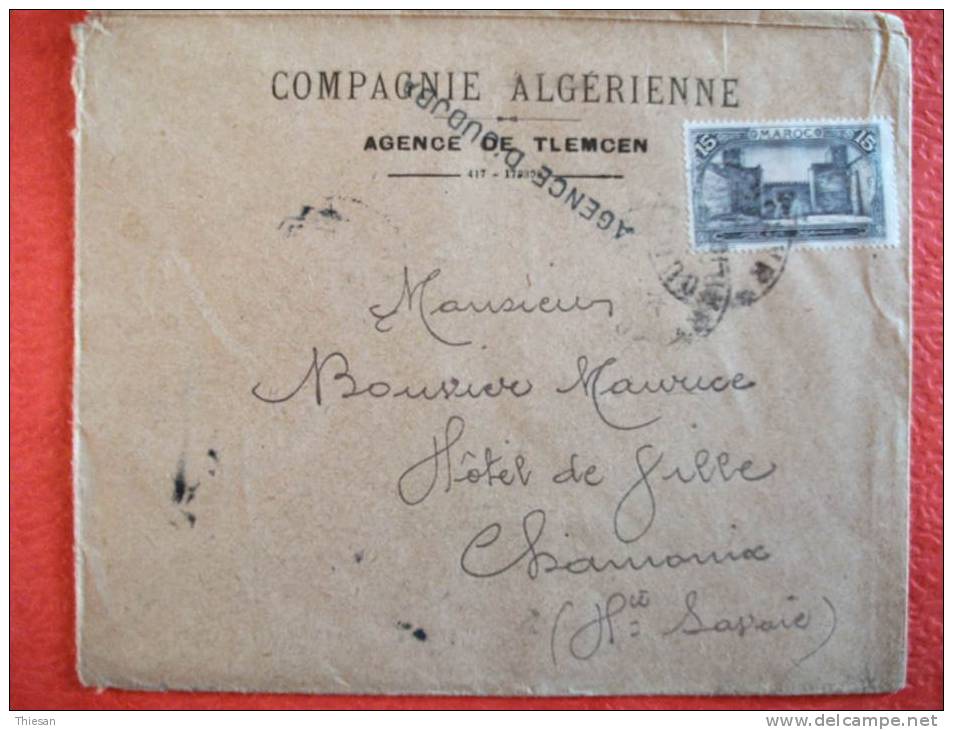 COMPAGNIE ALGÉRIENNE
AGENCE DE TLEMCEN
AGENCE D'OUDJDA
15 MAROC 15
Monsieur
Bouvier Maurice
Hôtel de Ville
Chamonix
(Hte Savoie)
Thiesan
www.delcampe.net